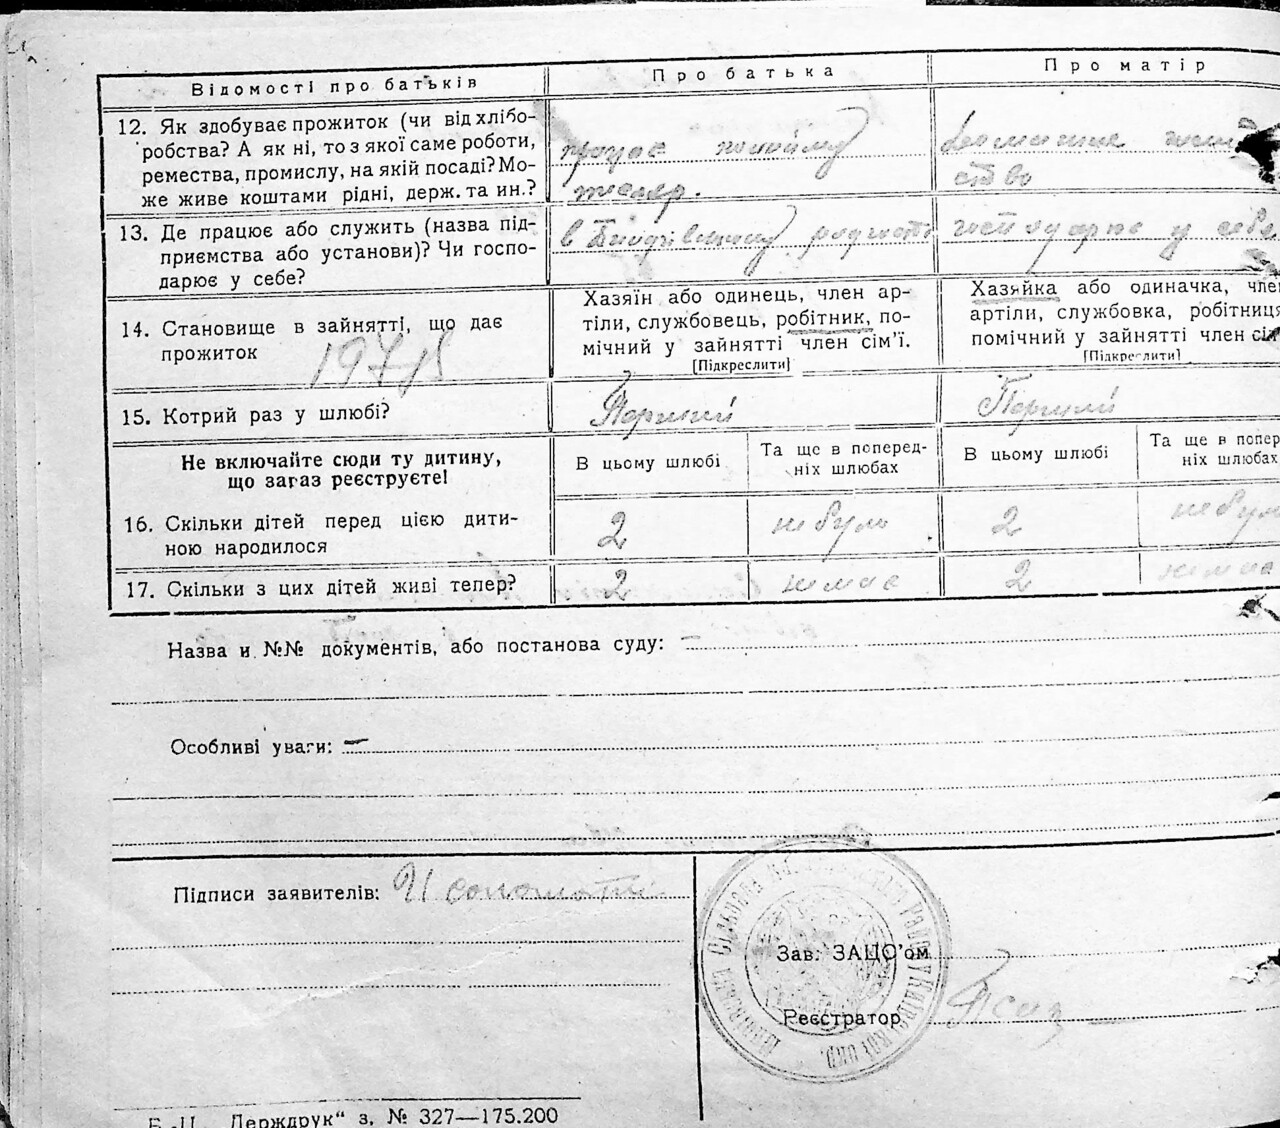 Відомості про батьків
Про батька
Про матір
12. Як здобуває прожиток (чи від хлібо-
робства? А як ні, то з якої саме роботи,
ремества, промислу, на якій посаді? Мо-
же живе коштами рідні, держ. та ин.?
працює
13. Де працює або служить (назва під-
приємства або установи)? Чи госпо-
дарює у себе?
в
господарює у себе
14. Становище в зайнятті, що дає
прожиток
Хазяїн або одинець, член ар-
тіли, службовець, робітник, по-
мічний у зайнятті член сім'ї.
[Підкреслити]
Хазяйка або одиначка, член
артіли, службовка, робітниця
помічний у зайнятті член сім
[Підкреслити]
15. Котрий раз у шлюбі?
Перший
Перший
Не включайте сюди ту дитину,
що зараз реєструєте!
В цьому шлюбі
Та ще в поперед-
ніх шлюбах
В цьому шлюбі
Та ще в попер
ніх шлюбах
16. Скільки дітей перед цією дити-
ною народилося
2
не було
2
не було
17. Скільки з цих дітей живі тепер?
2
немає
2
немає
Назва и №№ документів, або постанова суду: —
Особливі уваги: —
Підписи заявителів:
Зав. ЗАЦС'ом
Реєстратор
Б.-Ц. „Держдрук“ з. № 327—175.200